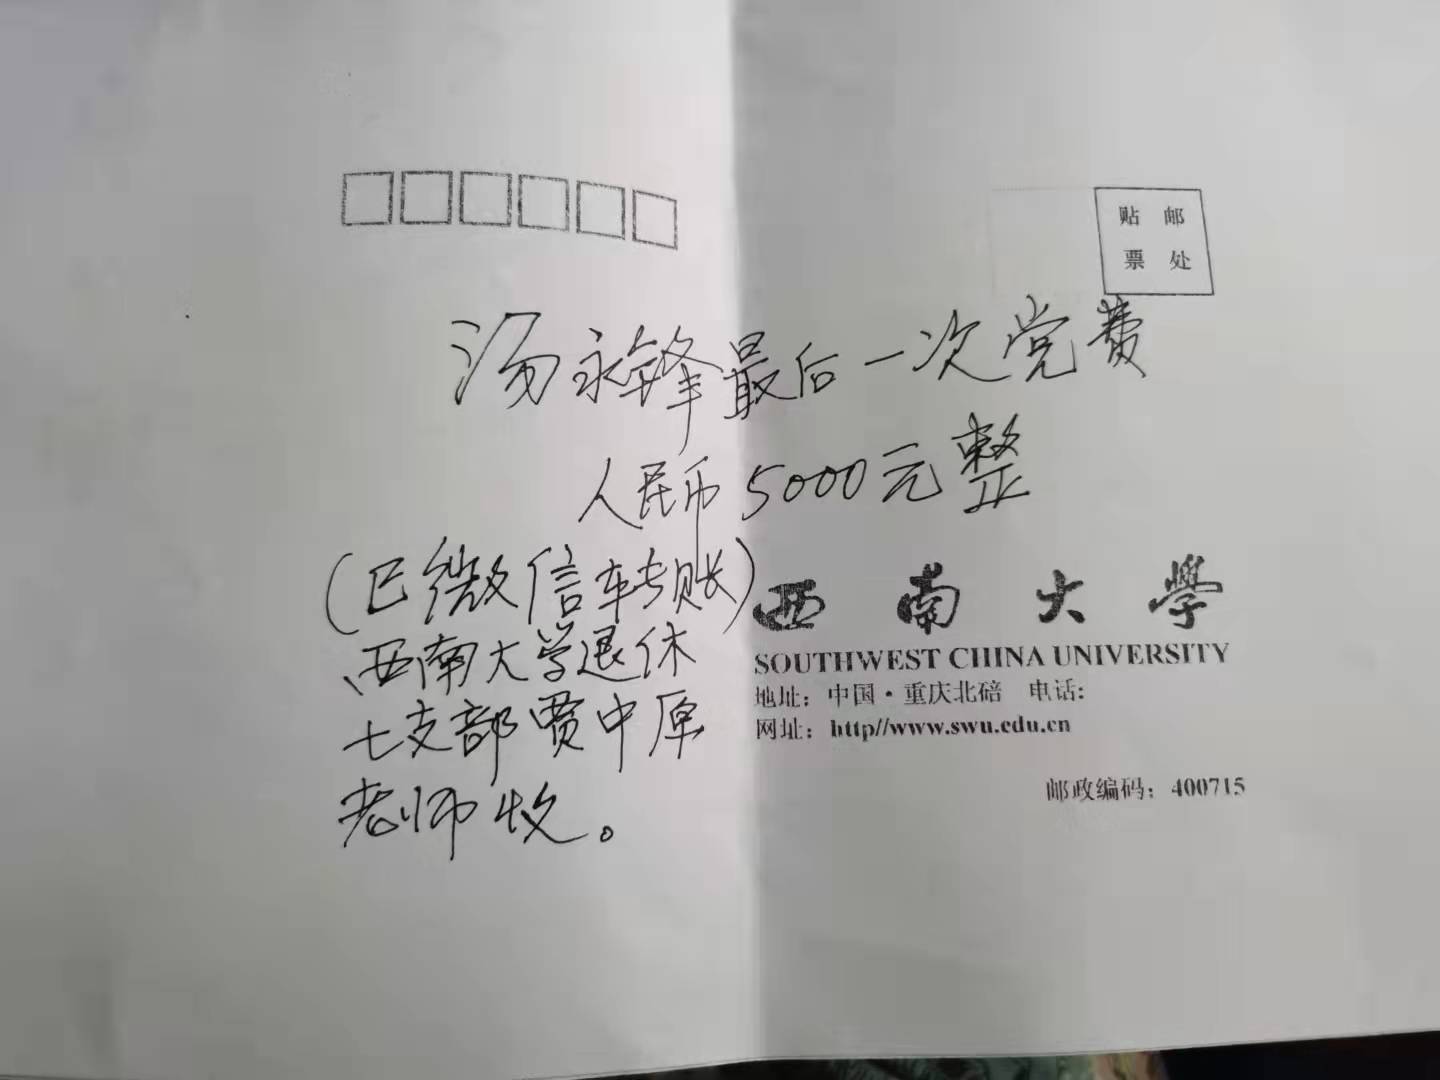 贴 邮
票 处
汤永锋最后一次党费
人民币5000元整
(已微信转账)
西南大学退休
七支部贾中原
老师收。
西南大学
SOUTHWEST CHINA UNIVERSITY
地址：中国·重庆北碚 电话:
网址：http//www.swu.edu.cn
邮政编码：400715